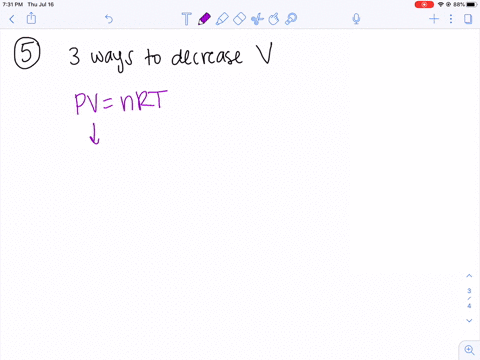 7:31 PM Thu Jul 16
88%
T
⑤ 3 ways to decrease V
PV = nRT
↓
3
/
4